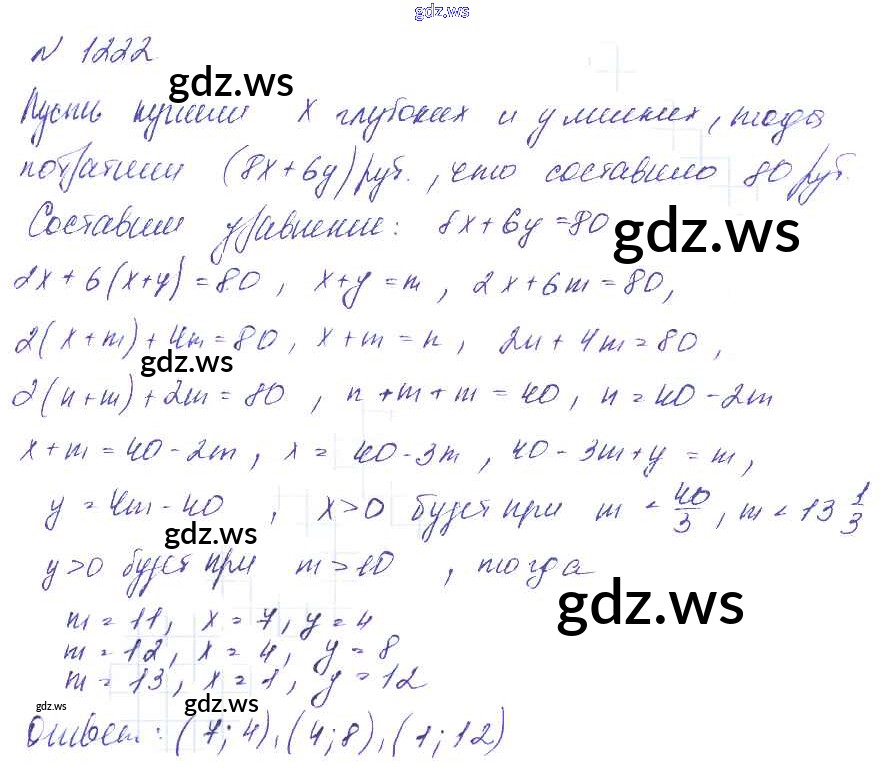 gdz.ws
N 1222
gdz.ws
Пусть купили x глубоких и y мелких, тогда
потратили (8x+6y) руб., что составило 80 руб.
Составим уравнение: 8x+6y=80
gdz.ws
2x+6(x+y)=80, x+y=m, 2x+6m=80,
2(x+m)+4m=80, x+m=n, 2n+4m=80,
gdz.ws
2(n+m)+2m=80, n+m+m=40, n=40-2m
x+m=40-2m, x=40-3m, 40-3m+y=m,
y=4m-40, x>0 будет при m < 40/3, m < 13 1/3
gdz.ws
y>0 будет при m>10, тогда
gdz.ws
m=11, x=7, y=4
m=12, x=4, y=8
m=13, x=1, y=12
gdz.ws gdz.ws
Ответ: (7;4), (4;8), (1;12)